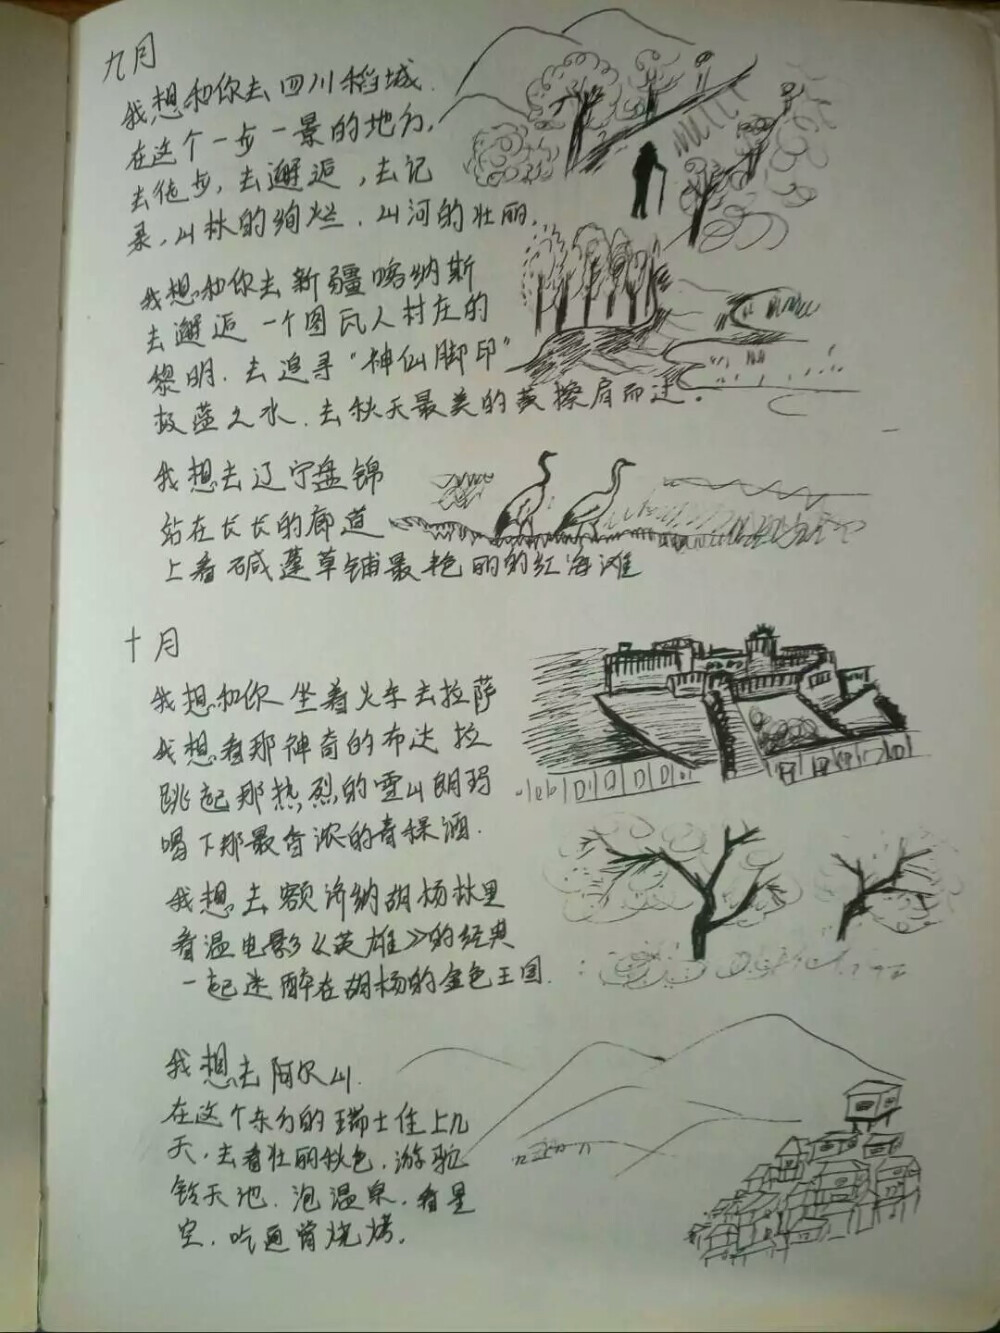 九月
我想和你去四川稻城.
在这个一步一景的地方,
去徒步,去邂逅,去记
录,山林的绚烂.山河的壮丽.
我想和你去新疆喀纳斯
去邂逅一个图瓦人村庄的
黎明.去追寻“神仙脚印”
极蓝之水.去秋天最美的黄擦肩而过.
我想去辽宁盘锦
站在长长的廊道
上看碱蓬草铺最艳丽的红海滩
十月
我想和你坐着火车去拉萨
我想看那神奇的布达拉
跳起那热烈的雪山朗玛
喝下那最香浓的青稞酒.
我想去额济纳胡杨林里
看温电影《英雄》的经典
一起迷醉在胡杨的金色王国.
我想去阿尔山.
在这个东方的瑞士住上几
天,去看壮丽秋色.游驼
铃天池.泡温泉.看星
空.吃通宵烧烤.